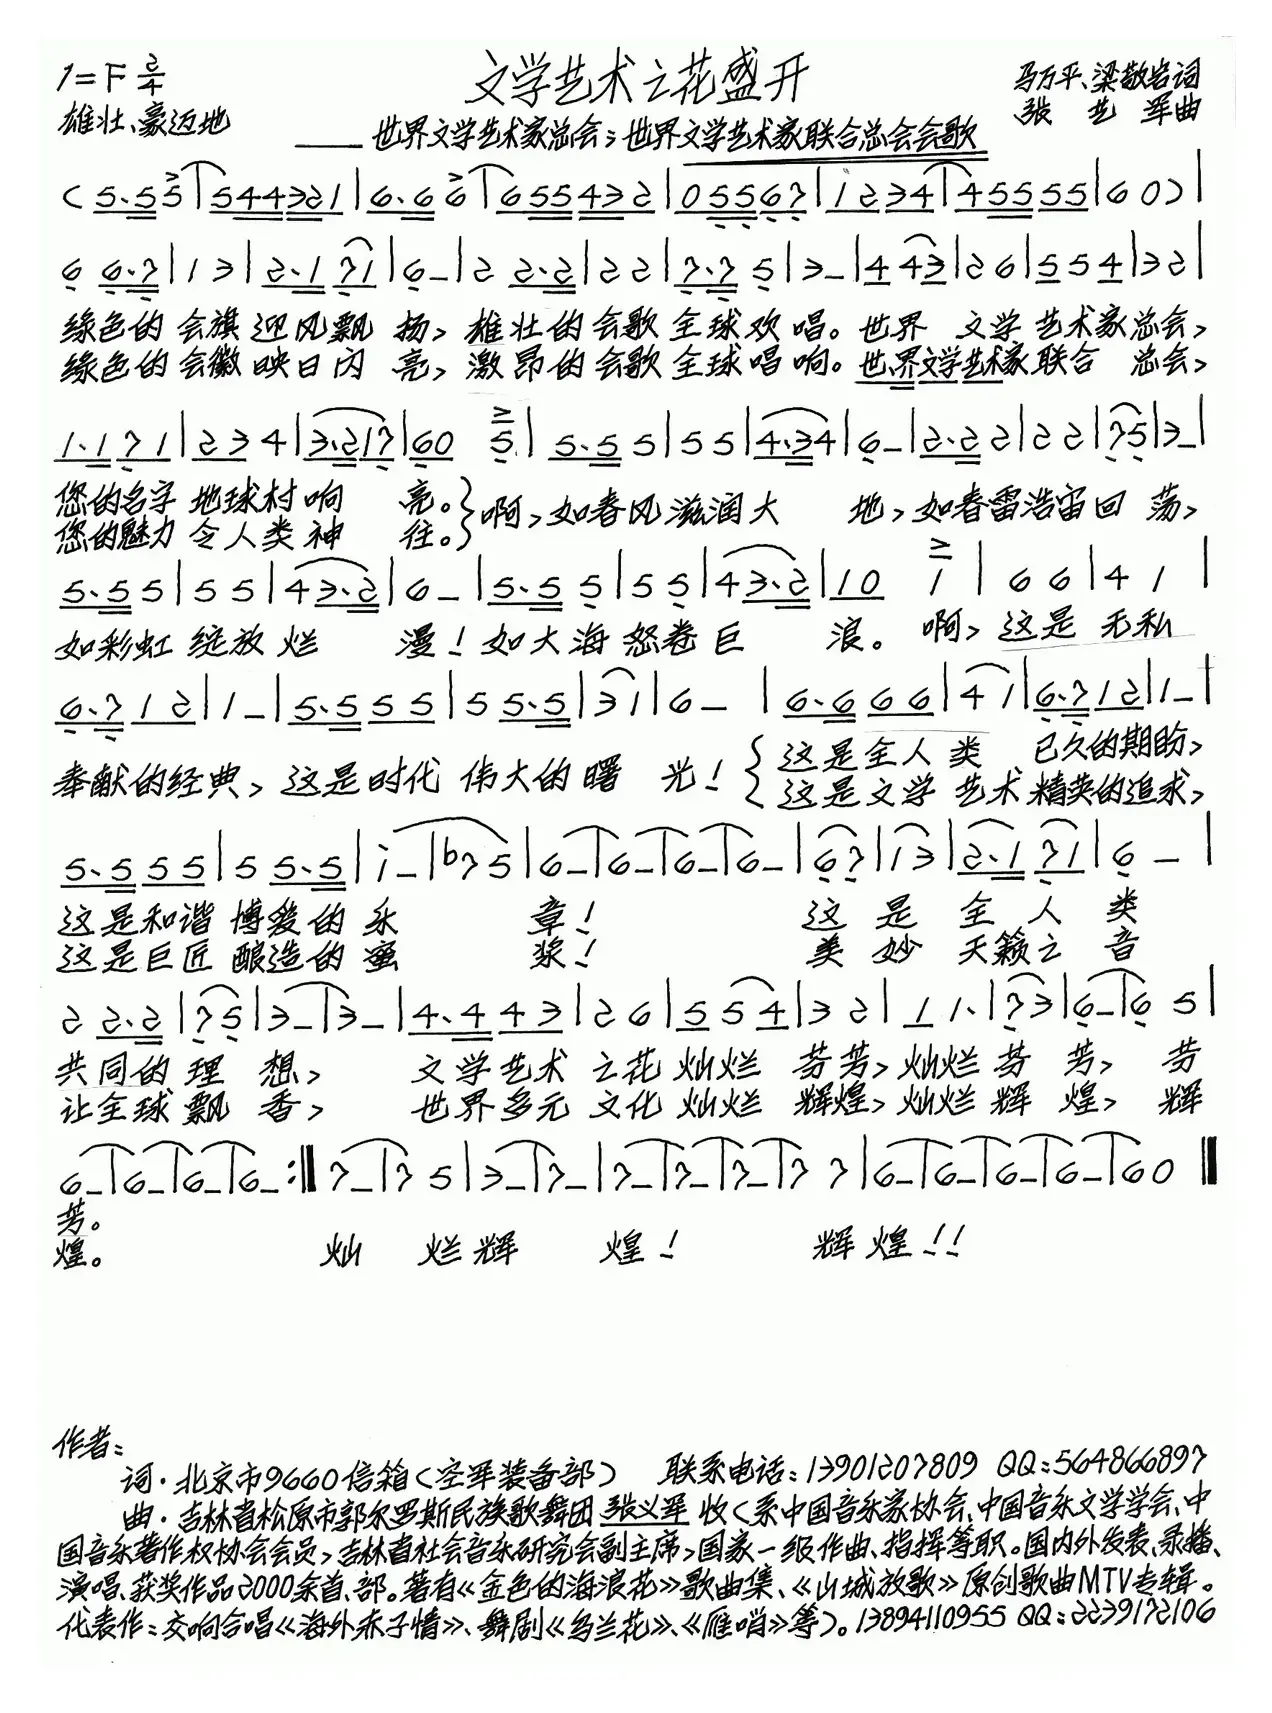 1=F 2/4 文学艺术之花盛开 马万平、梁敬岩词
雄壮、豪迈地 ——世界文学艺术家总会；世界文学艺术家联合总会会歌 张艺军曲
(5.5 5 | 5 4 4 3 2 1 | 6.6 6 | 6 5 5 4 3 2 | 0 5 5 6 7 | 1 2 3 4 | 4 5 5 5 5 | 6 0) |
6 6.7 | 1 3 | 2.1 7 1 | 6 – | 2 2.2 | 2 2 | 7.7 5 | 3 – | 4 4 3 | 2 6 | 5 5 4 | 3 2 |
绿色的会旗迎风飘扬，雄壮的会歌全球欢唱。世界文学艺术家总会，
绿色的会徽映日闪亮，激昂的会歌全球唱响。世界文学艺术家联合总会，
1.1 7 1 | 2 3 4 | 3.2 1 7 | 6 0 5 | 5.5 5 | 5 5 | 4.3 4 | 6 – | 2.2 2 | 2 2 | 7 5 | 3 – |
您的名字地球村响亮。}啊，如春风滋润大地，如春雷浩宙回荡，
您的魅力令人类神往。
5.5 5 | 5 5 | 4 3.2 | 6 – | 5.5 5 | 5 5 | 4 3.2 | 1 0 1 | 6 6 | 4 1 |
如彩虹绽放烂漫！如大海怒卷巨浪。啊，这是无私
6.7 1 2 | 1 – | 5.5 5 5 | 5 5.5 | 3 1 | 6 – | 6.6 6 6 | 4 1 | 6.7 1 2 | 1 – |
奉献的经典，这是时代伟大的曙光！{这是全人类已久的期盼，
这是文学艺术精英的追求，
5.5 5 5 | 5 5.5 | i – | b7 5 | 6 – | 6 – | 6 – | 6 – | 6 7 | 1 3 | 2.1 7 1 | 6 – |
这是和谐博爱的乐章！这是全人类
这是巨匠酿造的蜜浆！美妙天籁之音
2 2.2 | 7 5 | 3 – | 3 – | 4.4 4 3 | 2 6 | 5 5 4 | 3 2 | 1 1. | 7 3 | 6 – | 6 5 |
共同的理想，文学艺术之花灿烂芬芳，灿烂芬芳，芬
让全球飘香，世界多元文化灿烂辉煌，灿烂辉煌，辉
6 – | 6 – | 6 – | 6 – :‖ 7 – | 7 5 | 3 – | 7 – | 7 – | 7 – | 7 – | 7 7 | 6 – | 6 – | 6 – | 6 – | 6 0 ‖
芳。
煌。灿烂辉煌！辉煌！！
作者：
词·北京市9660信箱（空军装备部） 联系电话：13901207809 QQ：564866897
曲·吉林省松原市郭尔罗斯民族歌舞团张义军收（系中国音乐家协会、中国音乐文学学会、中
国音乐著作权协会会员，吉林省社会音乐研究会副主席，国家一级作曲、指挥等职。国内外发表、录播、
演唱、获奖作品2000余首、部。著有《金色的海浪花》歌曲集、《山城放歌》原创歌曲MTV专辑。
代表作：交响合唱《海外赤子情》、舞剧《乌兰花》、《雁哨》等）。13894110955 QQ：2239172106